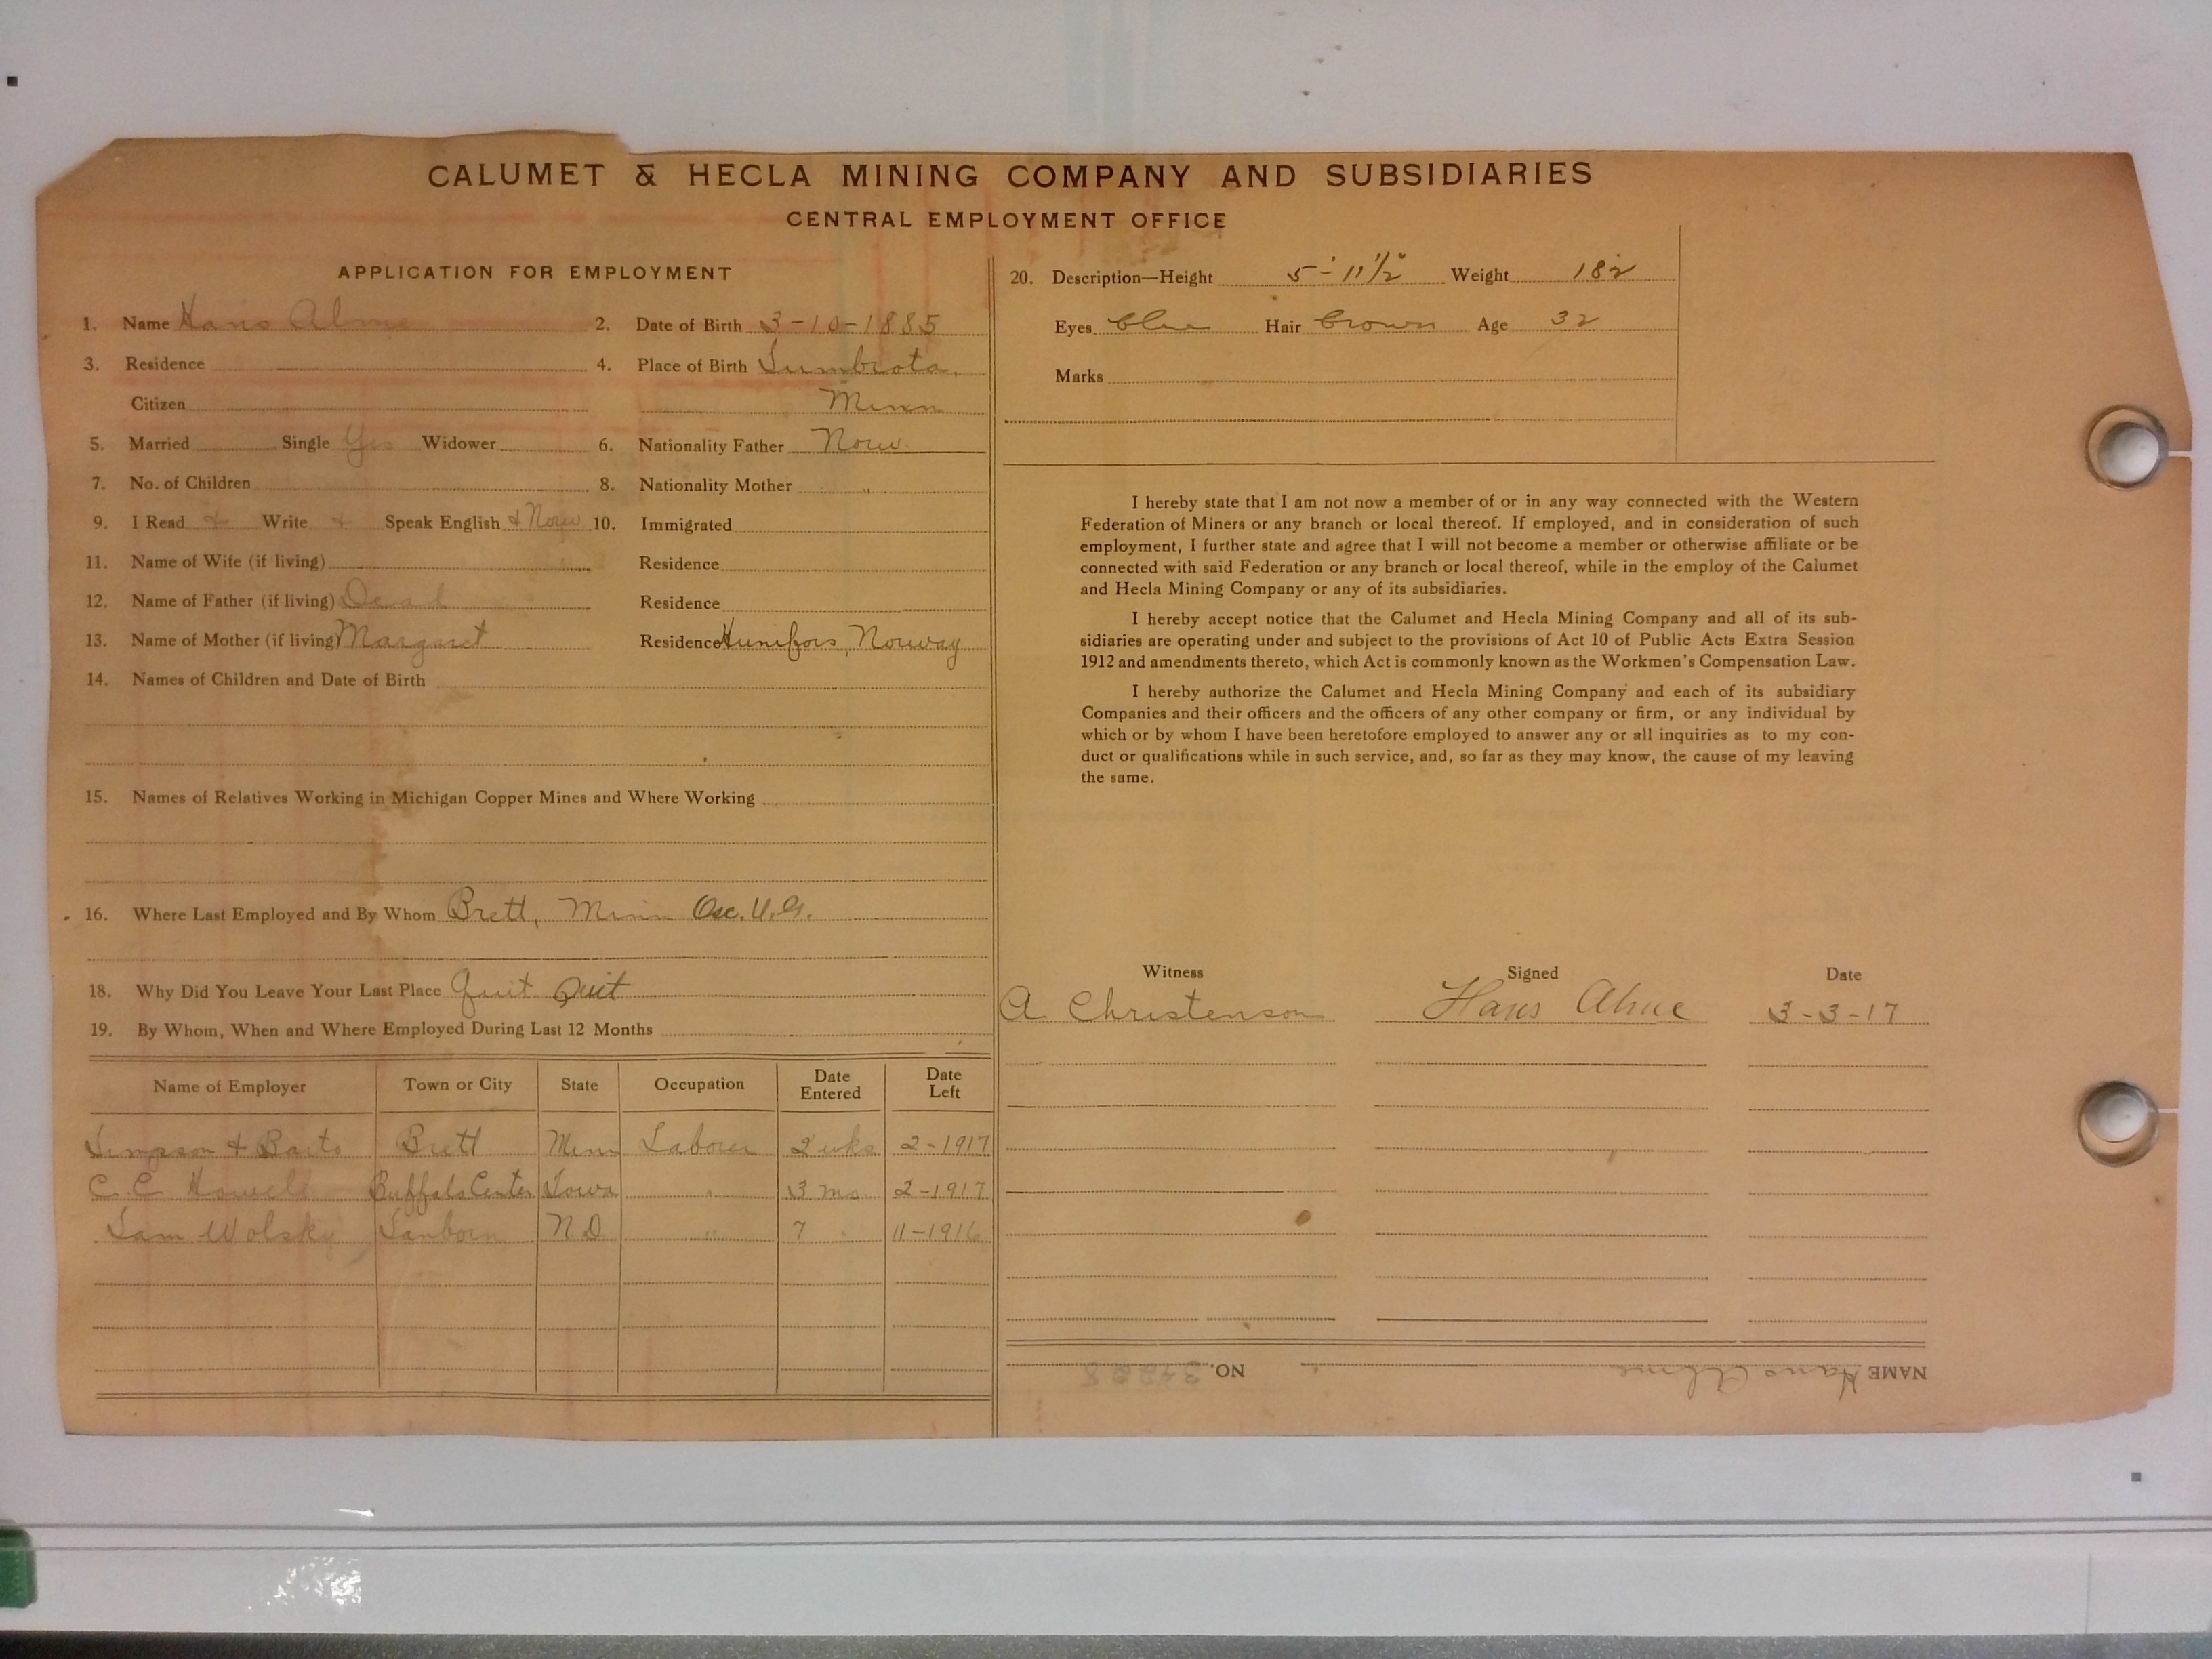 CALUMET & HECLA MINING COMPANY AND SUBSIDIARIES
CENTRAL EMPLOYMENT OFFICE
APPLICATION FOR EMPLOYMENT
1. Name Hans Alme 2. Date of Birth 3-10-1885
3. Residence 4. Place of Birth Sumbrota,
Citizen Minn
5. Married Single Yes Widower 6. Nationality Father Norw.
7. No. of Children 8. Nationality Mother "
9. I Read + Write + Speak English + Norw 10. Immigrated
11. Name of Wife (if living) Residence
12. Name of Father (if living) Dead Residence
13. Name of Mother (if living) Margaret Residence Norway
14. Names of Children and Date of Birth
15. Names of Relatives Working in Michigan Copper Mines and Where Working
16. Where Last Employed and By Whom Brett, Minn Osc. U.G.
18. Why Did You Leave Your Last Place Quit Quit
19. By Whom, When and Where Employed During Last 12 Months
Name of Employer Town or City State Occupation Date Entered Date Left
Simpson + Brett Minn Laborer 2 wks 2-1917
C C Howell Buffalo Center Iowa " 3 mo. 2-1917
Sam Wolsky Sanborn N D " 7 " 11-1916
20. Description—Height 5'-11 1/2" Weight 182
Eyes blue Hair brown Age 32
Marks
I hereby state that I am not now a member of or in any way connected with the Western
Federation of Miners or any branch or local thereof. If employed, and in consideration of such
employment, I further state and agree that I will not become a member or otherwise affiliate or be
connected with said Federation or any branch or local thereof, while in the employ of the Calumet
and Hecla Mining Company or any of its subsidiaries.
I hereby accept notice that the Calumet and Hecla Mining Company and all of its sub-
sidiaries are operating under and subject to the provisions of Act 10 of Public Acts Extra Session
1912 and amendments thereto, which Act is commonly known as the Workmen's Compensation Law.
I hereby authorize the Calumet and Hecla Mining Company and each of its subsidiary
Companies and their officers and the officers of any other company or firm, or any individual by
which or by whom I have been heretofore employed to answer any or all inquiries as to my con-
duct or qualifications while in such service, and, so far as they may know, the cause of my leaving
the same.
Witness Signed Date
A Christenson Hans Alme 3-3-17
NAME Hans Alme NO. 34228